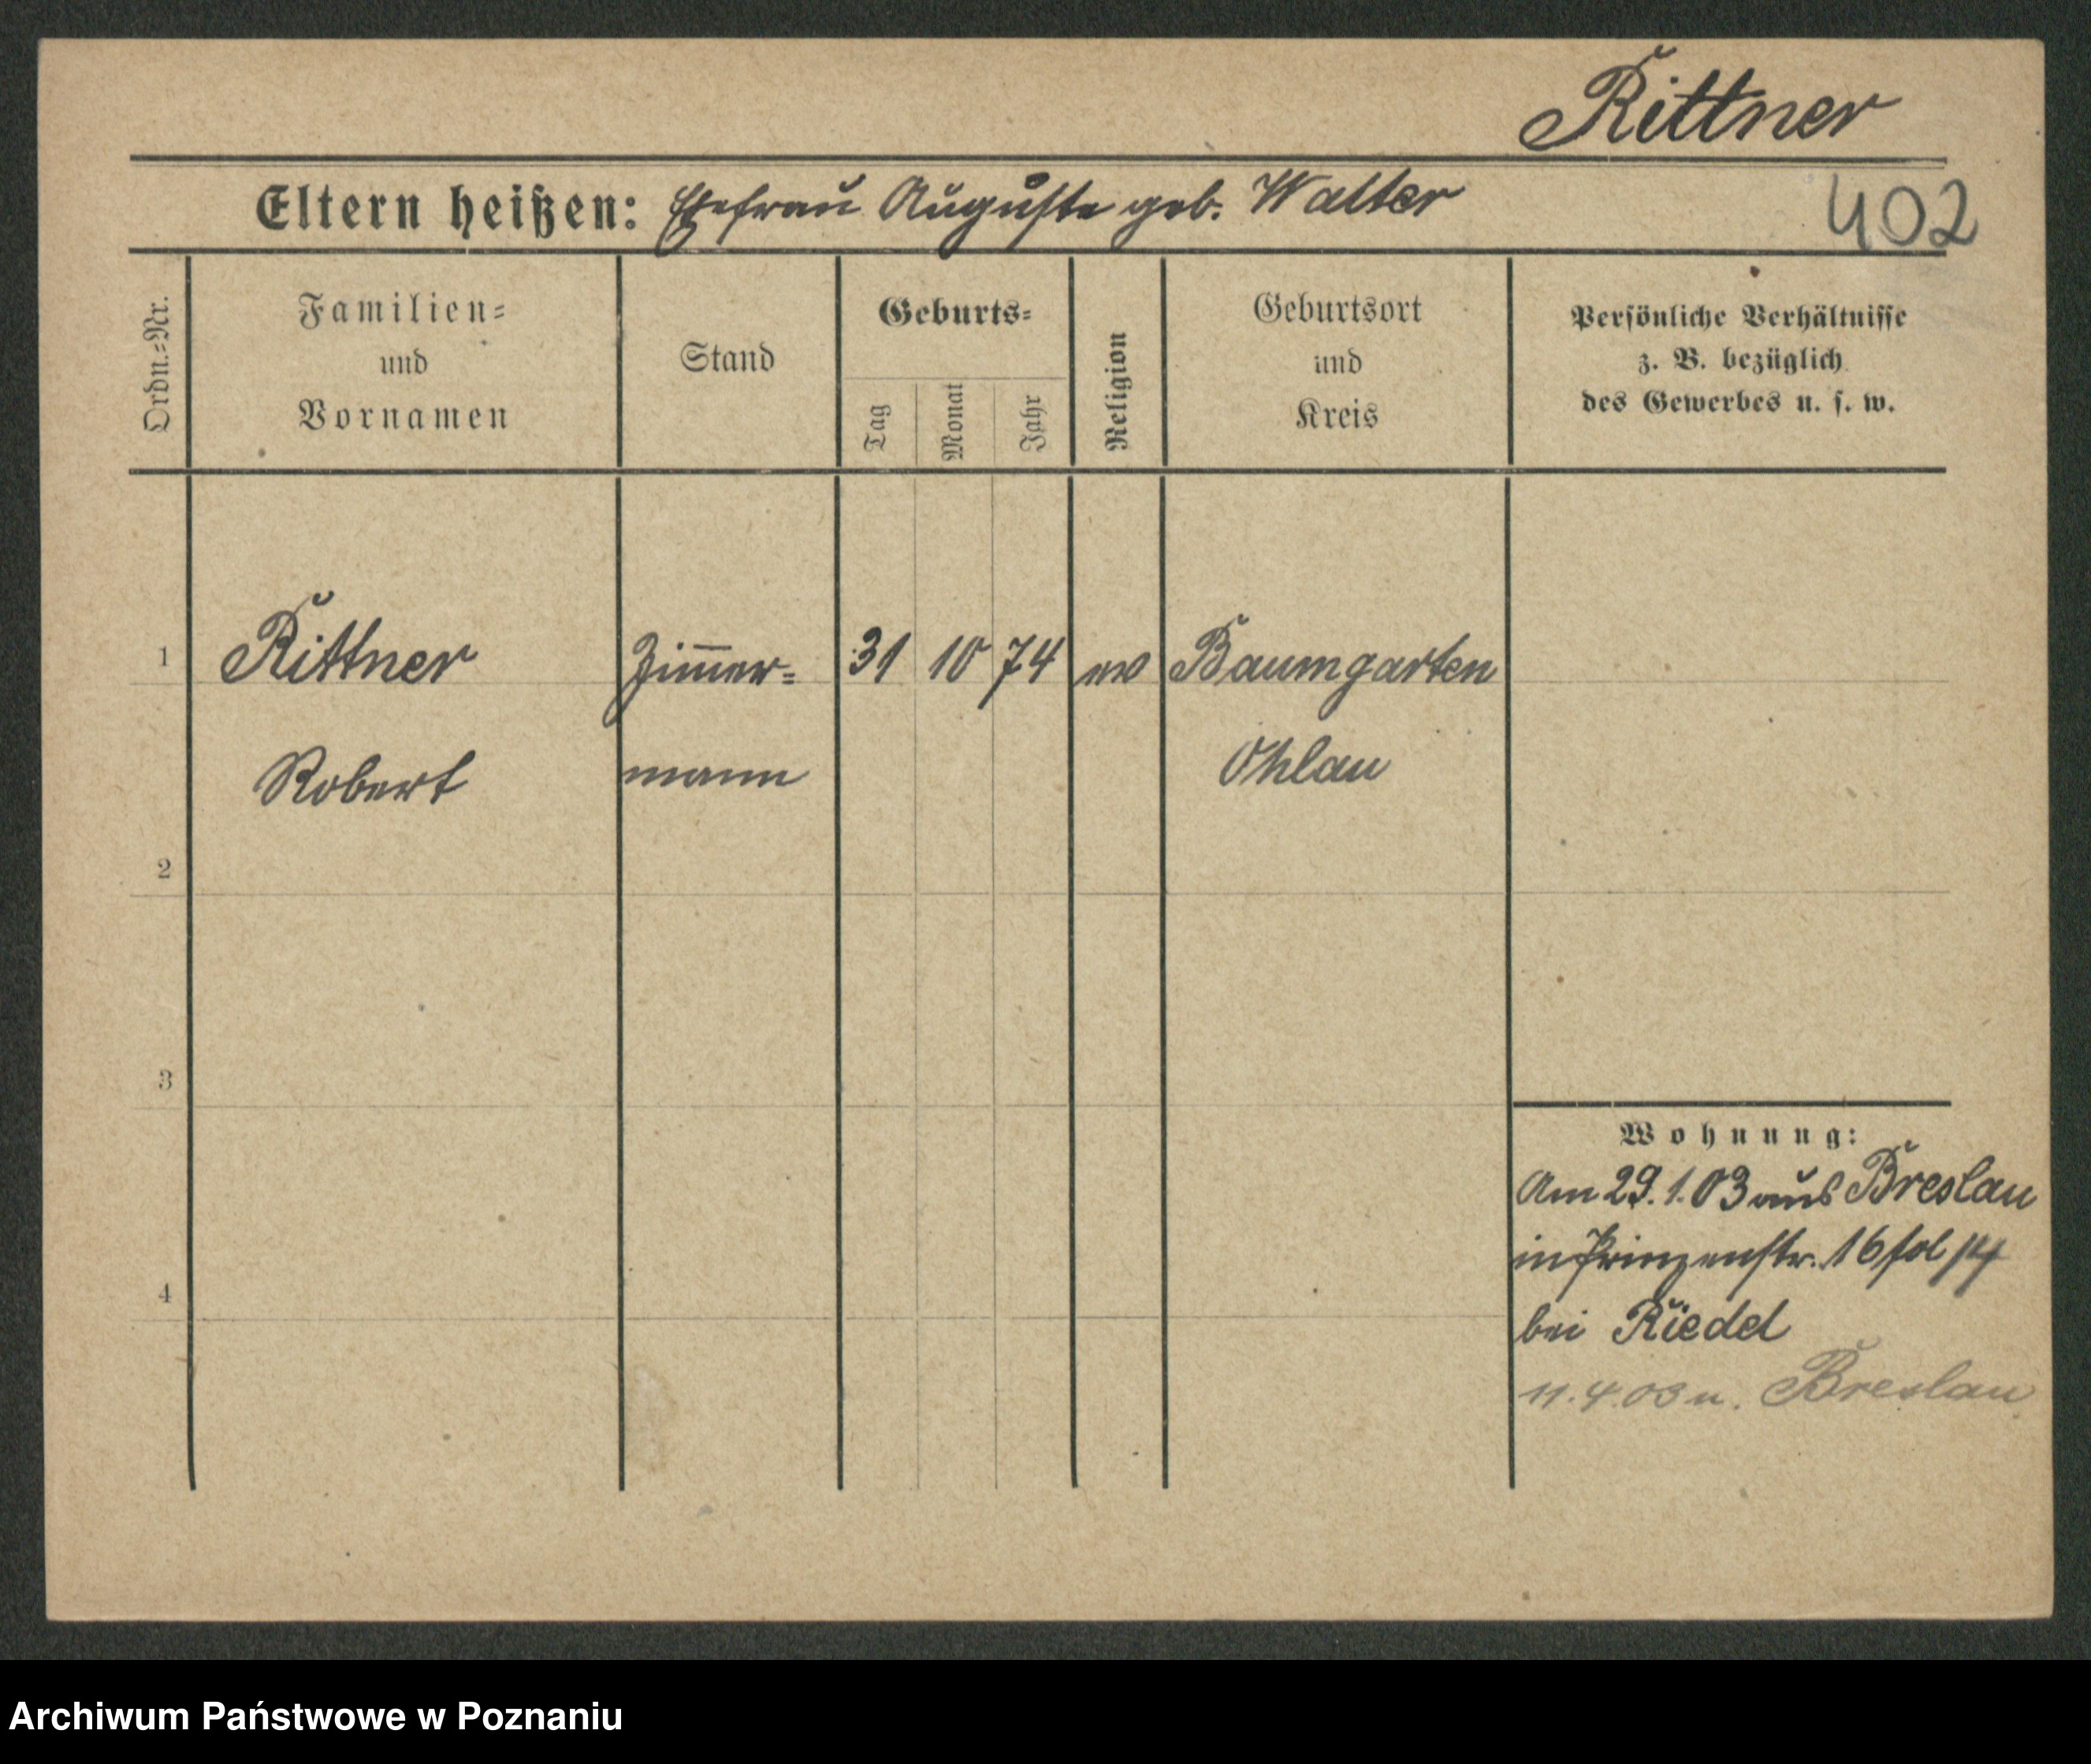 Rittner
Eltern heißen: Ehefrau Auguste geb. Walter
402
Ordn.=Nr.
Familien=
und
Vornamen
Stand
Geburts=
Tag
Monat
Jahr
Religion
Geburtsort
und
Kreis
Persönliche Verhältnisse
z. B. bezüglich
des Gewerbes u. s. w.
1 Rittner Zim̅er= 31 10 74 ev Baumgarten
Robert mann Ohlau
2
3
4
Wohnung:
Am 29.1.03 aus Breslau
in Prinzenstr. 16 fol 14
bei Riedel
11.4.03 n. Breslau
Archiwum Państwowe w Poznaniu